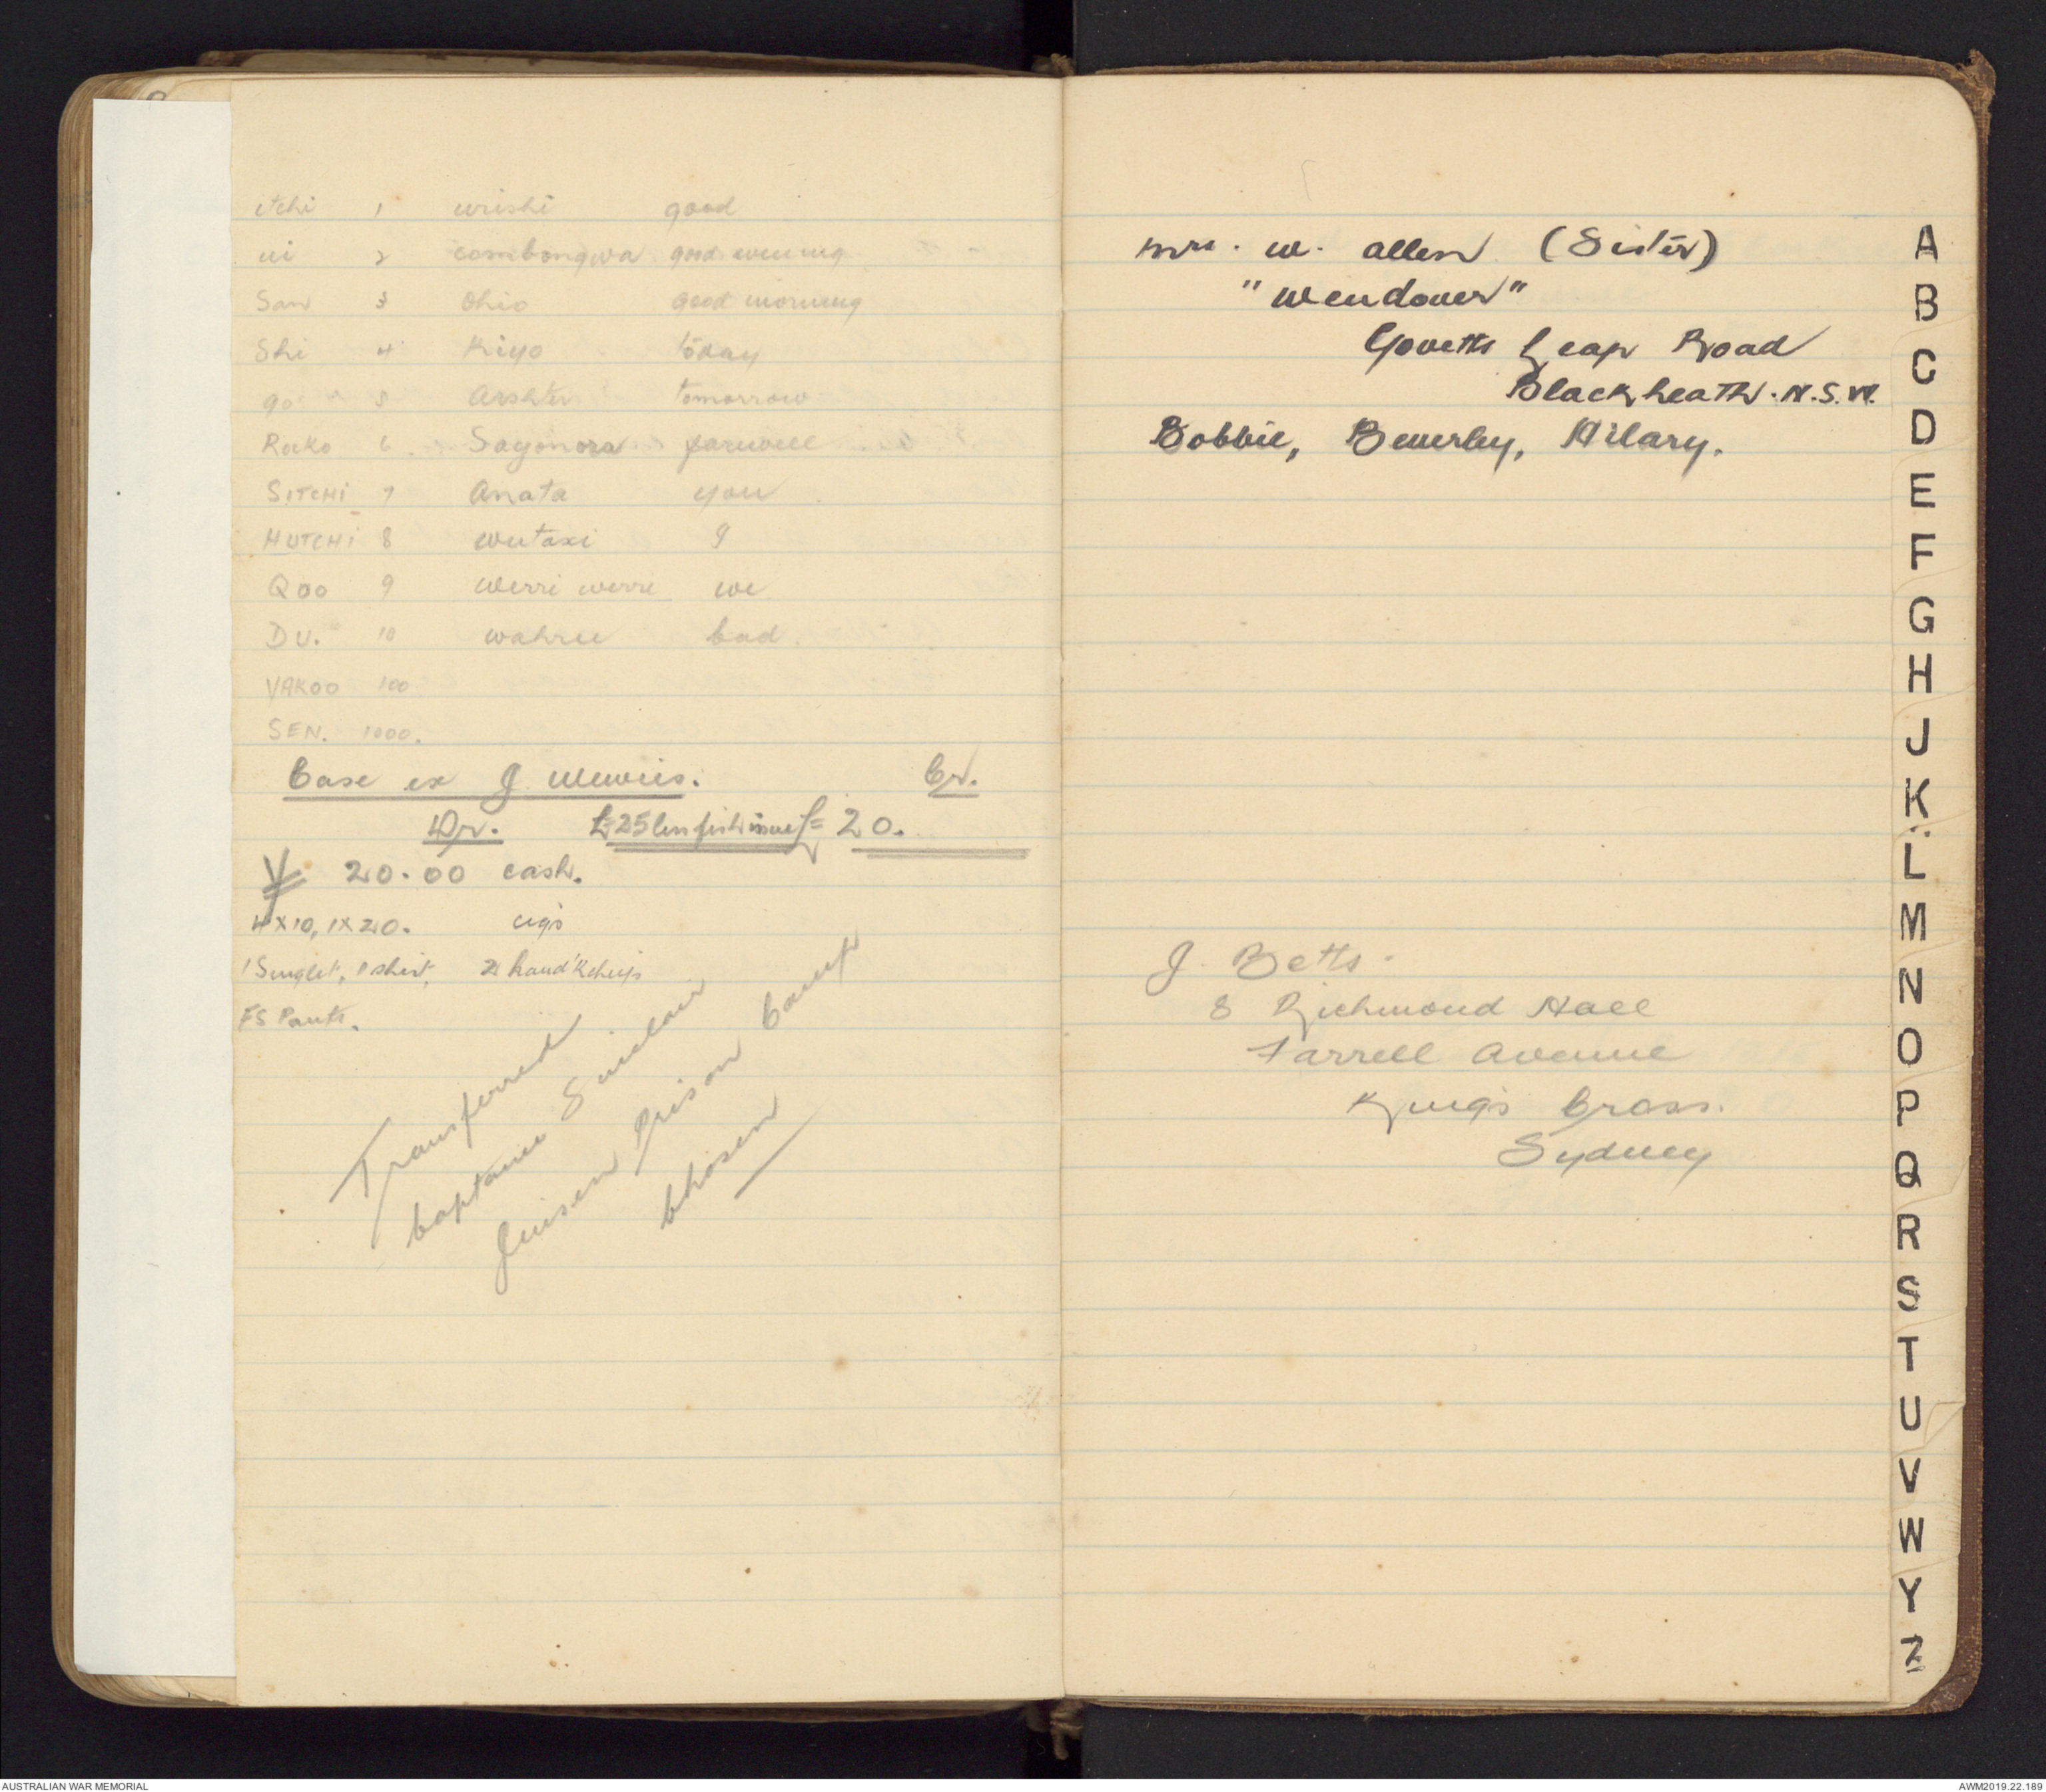 itchi 1 urishi good
ni 2 combongwa good evening
San 3 Ohio good morning
Shi 4 Kiyo today
go 5 Arshter tomorrow
Rocko 6 Sayonora farewell
SITCHI 7 Anata you
HUTCHI 8 wutaxi I
Qoo 9 werri werri we
DU. 10 wahree bad.
YAKOO 100
SEN. 1000.
Case ex J Cr.
Dr. £25 less fish issue £ 20.
¥ 20.00 cash.
4 x 10, 1 x 20. cigs
1 Singlet, 1 shirt, 2 hand'kchiefs
FS Pants.
Transferred
Captain Sinclair
Jinsen Prison Camp
Chosen
Mrs. W. Allen (Sister)
"Wendover"
Govetts Leap Road
Blackheath. N.S.W.
Bobbie, Beverley, Hilary.
J. Betts.
8 Richmond Hall
Farrell Avenue
Kings Cross.
Sydney
A
B
C
D
E
F
G
H
J
K
L
M
N
O
P
Q
R
S
T
U
V
W
Y
Z
AUSTRALIAN WAR MEMORIAL
AWM2019.22.189